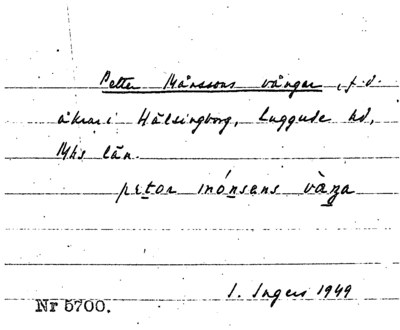 Petter Månssons vångar, f.d.
åkrar i Hälsingborg, Luggude hd,
Mhs län.
petor mónsens vàŋa
I. Ingers 1949
Nr 5700.